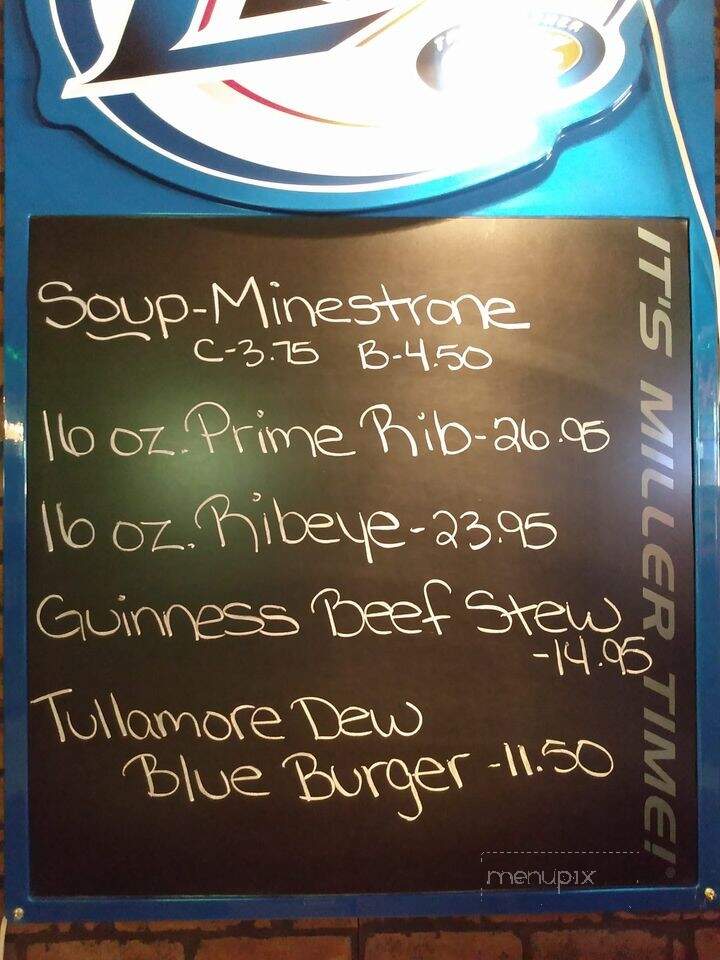 Soup-Minestrone
C-3.75 B-4.50
16 oz. Prime Rib-26.95
16 oz. Ribeye-23.95
Guinness Beef Stew
-14.95
Tullamore Dew
Blue Burger-11.50
IT'S MILLER TIME!
menupix